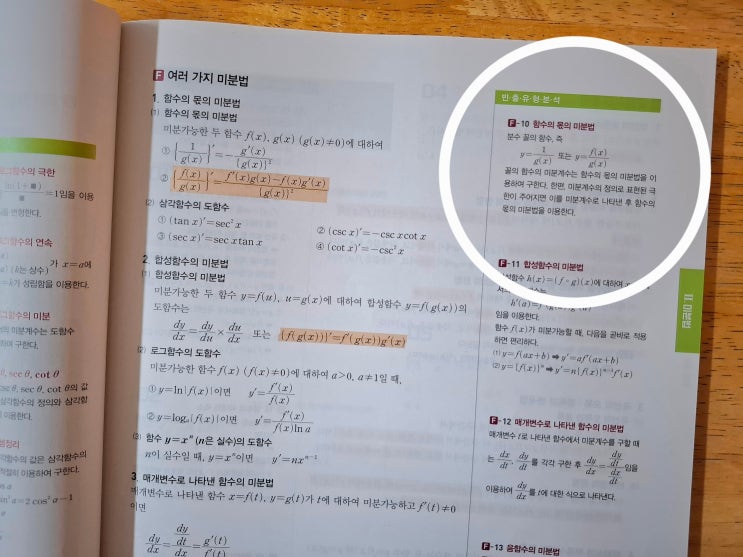 로그함수의 극한
ln(1+■)
■
=1임을 이용
변형한다.
로그함수의 연속
가 x=a에
(k는 상수)
=k가 성립함을 이용한다.
로그함수의 미분
의 미분계수는 도함수
하여 구한다.
θ, sec θ, cot θ
csc θ, sec θ, cot θ의 값
삼각함수의 정의와 삼각함
이용한다.
덧셈정리
각함수의 값은 삼각함수의
적절히 이용하여 구한다.
sin²α=2cos²α-1
F 여러 가지 미분법
1. 함수의 몫의 미분법
(1) 함수의 몫의 미분법
미분가능한 두 함수 f(x), g(x) (g(x)≠0)에 대하여
① {1/g(x)}′=-g′(x)/{g(x)}²
② {f(x)/g(x)}′=f′(x)g(x)-f(x)g′(x)/{g(x)}²
(2) 삼각함수의 도함수
① (tan x)′=sec²x ② (csc x)′=-csc x cot x
③ (sec x)′=sec x tan x ④ (cot x)′=-csc²x
2. 합성함수의 미분법
(1) 합성함수의 미분법
미분가능한 두 함수 y=f(u), u=g(x)에 대하여 합성함수 y=f(g(x))의
도함수는
dy/dx=dy/du×du/dx 또는 {f(g(x))}′=f′(g(x))g′(x)
(2) 로그함수의 도함수
미분가능한 함수 f(x) (f(x)≠0)에 대하여 a>0, a≠1일 때,
① y=ln|f(x)|이면 y′=f′(x)/f(x)
② y=logₐ|f(x)|이면 y′=f′(x)/f(x)ln a
(3) 함수 y=xⁿ (n은 실수)의 도함수
n이 실수일 때, y=xⁿ이면 y′=nxⁿ⁻¹
3. 매개변수로 나타낸 함수의 미분법
매개변수로 나타낸 함수 x=f(t), y=g(t)가 t에 대하여 미분가능하고 f′(t)≠0
이면
dy/dx=(dy/dt)/(dx/dt)=g′(t)/f′(t)
빈·출·유·형·분·석
F-10 함수의 몫의 미분법
분수 꼴의 함수, 즉
y=1/g(x) 또는 y=f(x)/g(x)
꼴의 함수의 미분계수는 함수의 몫의 미분법을 이
용하여 구한다. 한편, 미분계수의 정의로 표현된 극
한이 주어지면 이를 미분계수로 나타낸 후 함수의
몫의 미분법을 이용한다.
F-11 합성함수의 미분법
합성함수 h(x)=(f∘g)(x)에 대하여
h′(a)=
임을 이용한다.
함수 f(x)가 미분가능할 때, 다음을 곧바로 적용
하면 편리하다.
(1) y=f(ax+b) ➡ y′=af′(ax+b)
(2) y={f(x)}ⁿ ➡ y′=n{f(x)}ⁿ⁻¹f′(x)
II. 미분법
F-12 매개변수로 나타낸 함수의 미분법
매개변수 t로 나타낸 함수에서 미분계수를 구할 때
는 dx/dt, dy/dt를 각각 구한 후 dy/dx=(dy/dt)/(dx/dt)임을
이용하여 dy/dx를 t에 대한 식으로 나타낸다.
F-13 음함수의 미분법